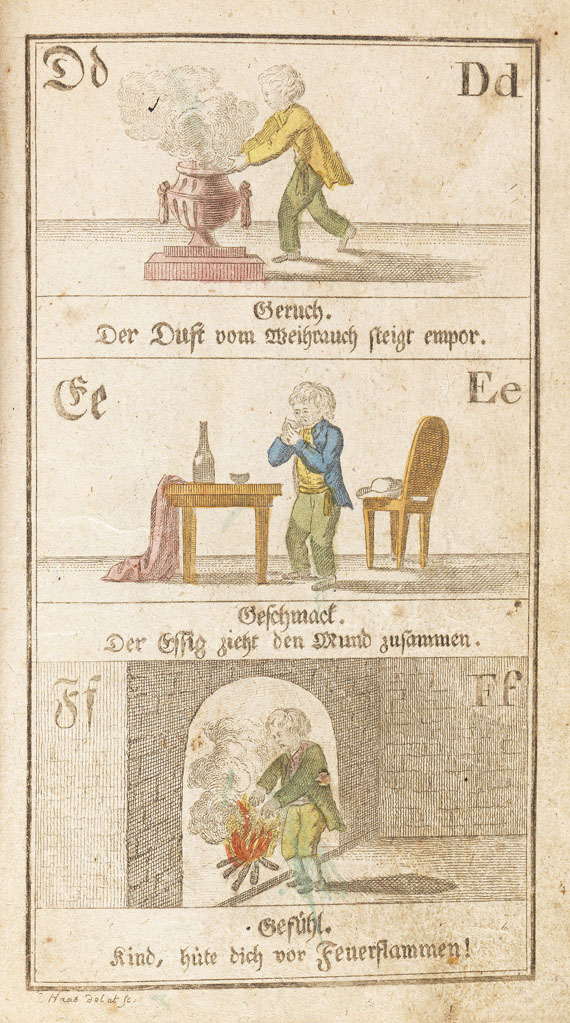 Dd Dd
Geruch.
Der Duft vom Weihrauch steigt empor.
Ee Ee
Geschmack.
Der Essig zieht den Mund zusammen.
Ff Ff
Gefühl.
Kind, hüte dich vor Feuerflammen!
Haas del. et sc.